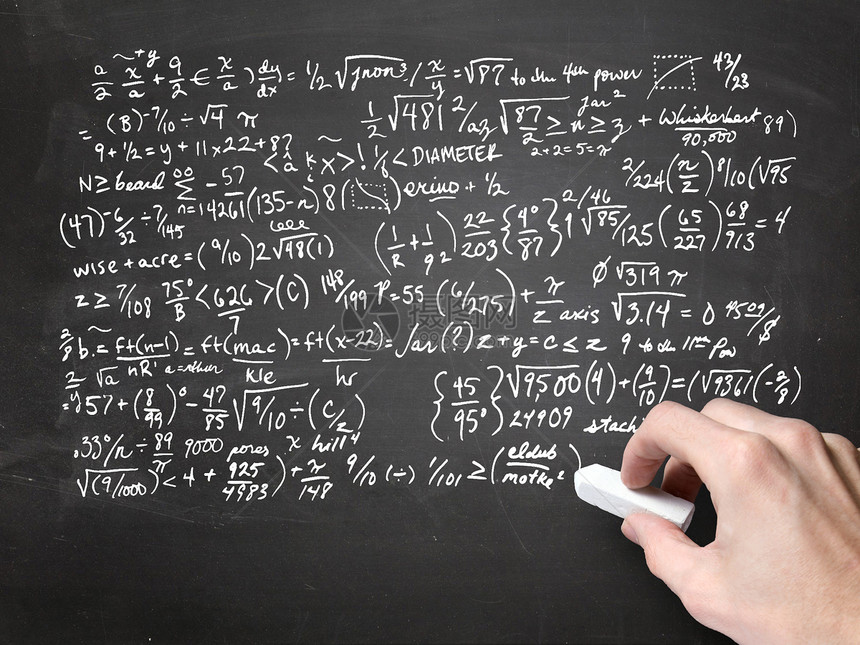 a/2 x/a + 9/2 € x/a) dy/dx = 1/2 √jnon³ / x/y = √87 to the 4th power 43/23
= (B)⁻⁷/10 ÷ √4 π 1/2 √481² /az √87/2 ≥ n ≥ z jar² + Whiskerbert/90,000 89)
9 + 1/2 = y + 11 x 22 + 8? < â k x > ! 1/8 < DIAMETER 2+2=5=π
N ≥ beard ∞ Σ n= -57/14261 (135-n) 8 ( ) erino + 1/2 2/224 (n/z) 8/10 (√95
(47)⁻⁶/32 ÷ 7/145 (1/R + 1/q²) 22/203 {4°/87} √85/125 2/46 (65/227) 68/913 = 4
wise + acre = (9/10) 2√48(1)
z ≥ 7/108 75°/B < 626/7 > (C) 148/199 P = 55 (6/275) + π/z axis √3.14 = 0 4509/$
Ø √319 π
2/8 b. = f+(n-1)/nR' = f+(mac)/kle = f+(x-22)/hr = Jar(?) z + y = c ≤ z 9 to the 11th Pow
2/√a
= y 57 + (8/99)° - 47/85 √9/10 ÷ (C/z) {45/95°} √9,500 (4) + (9/10) = (√9361 (-2/8)
24909 stach
.33%/n ÷ 89/π 9000 pores x hill⁴
√(9/1000) < 4 + 925/4983) + π/148 9/10 (÷) 1/101 ≥ (eldub/motke²)
摄图网